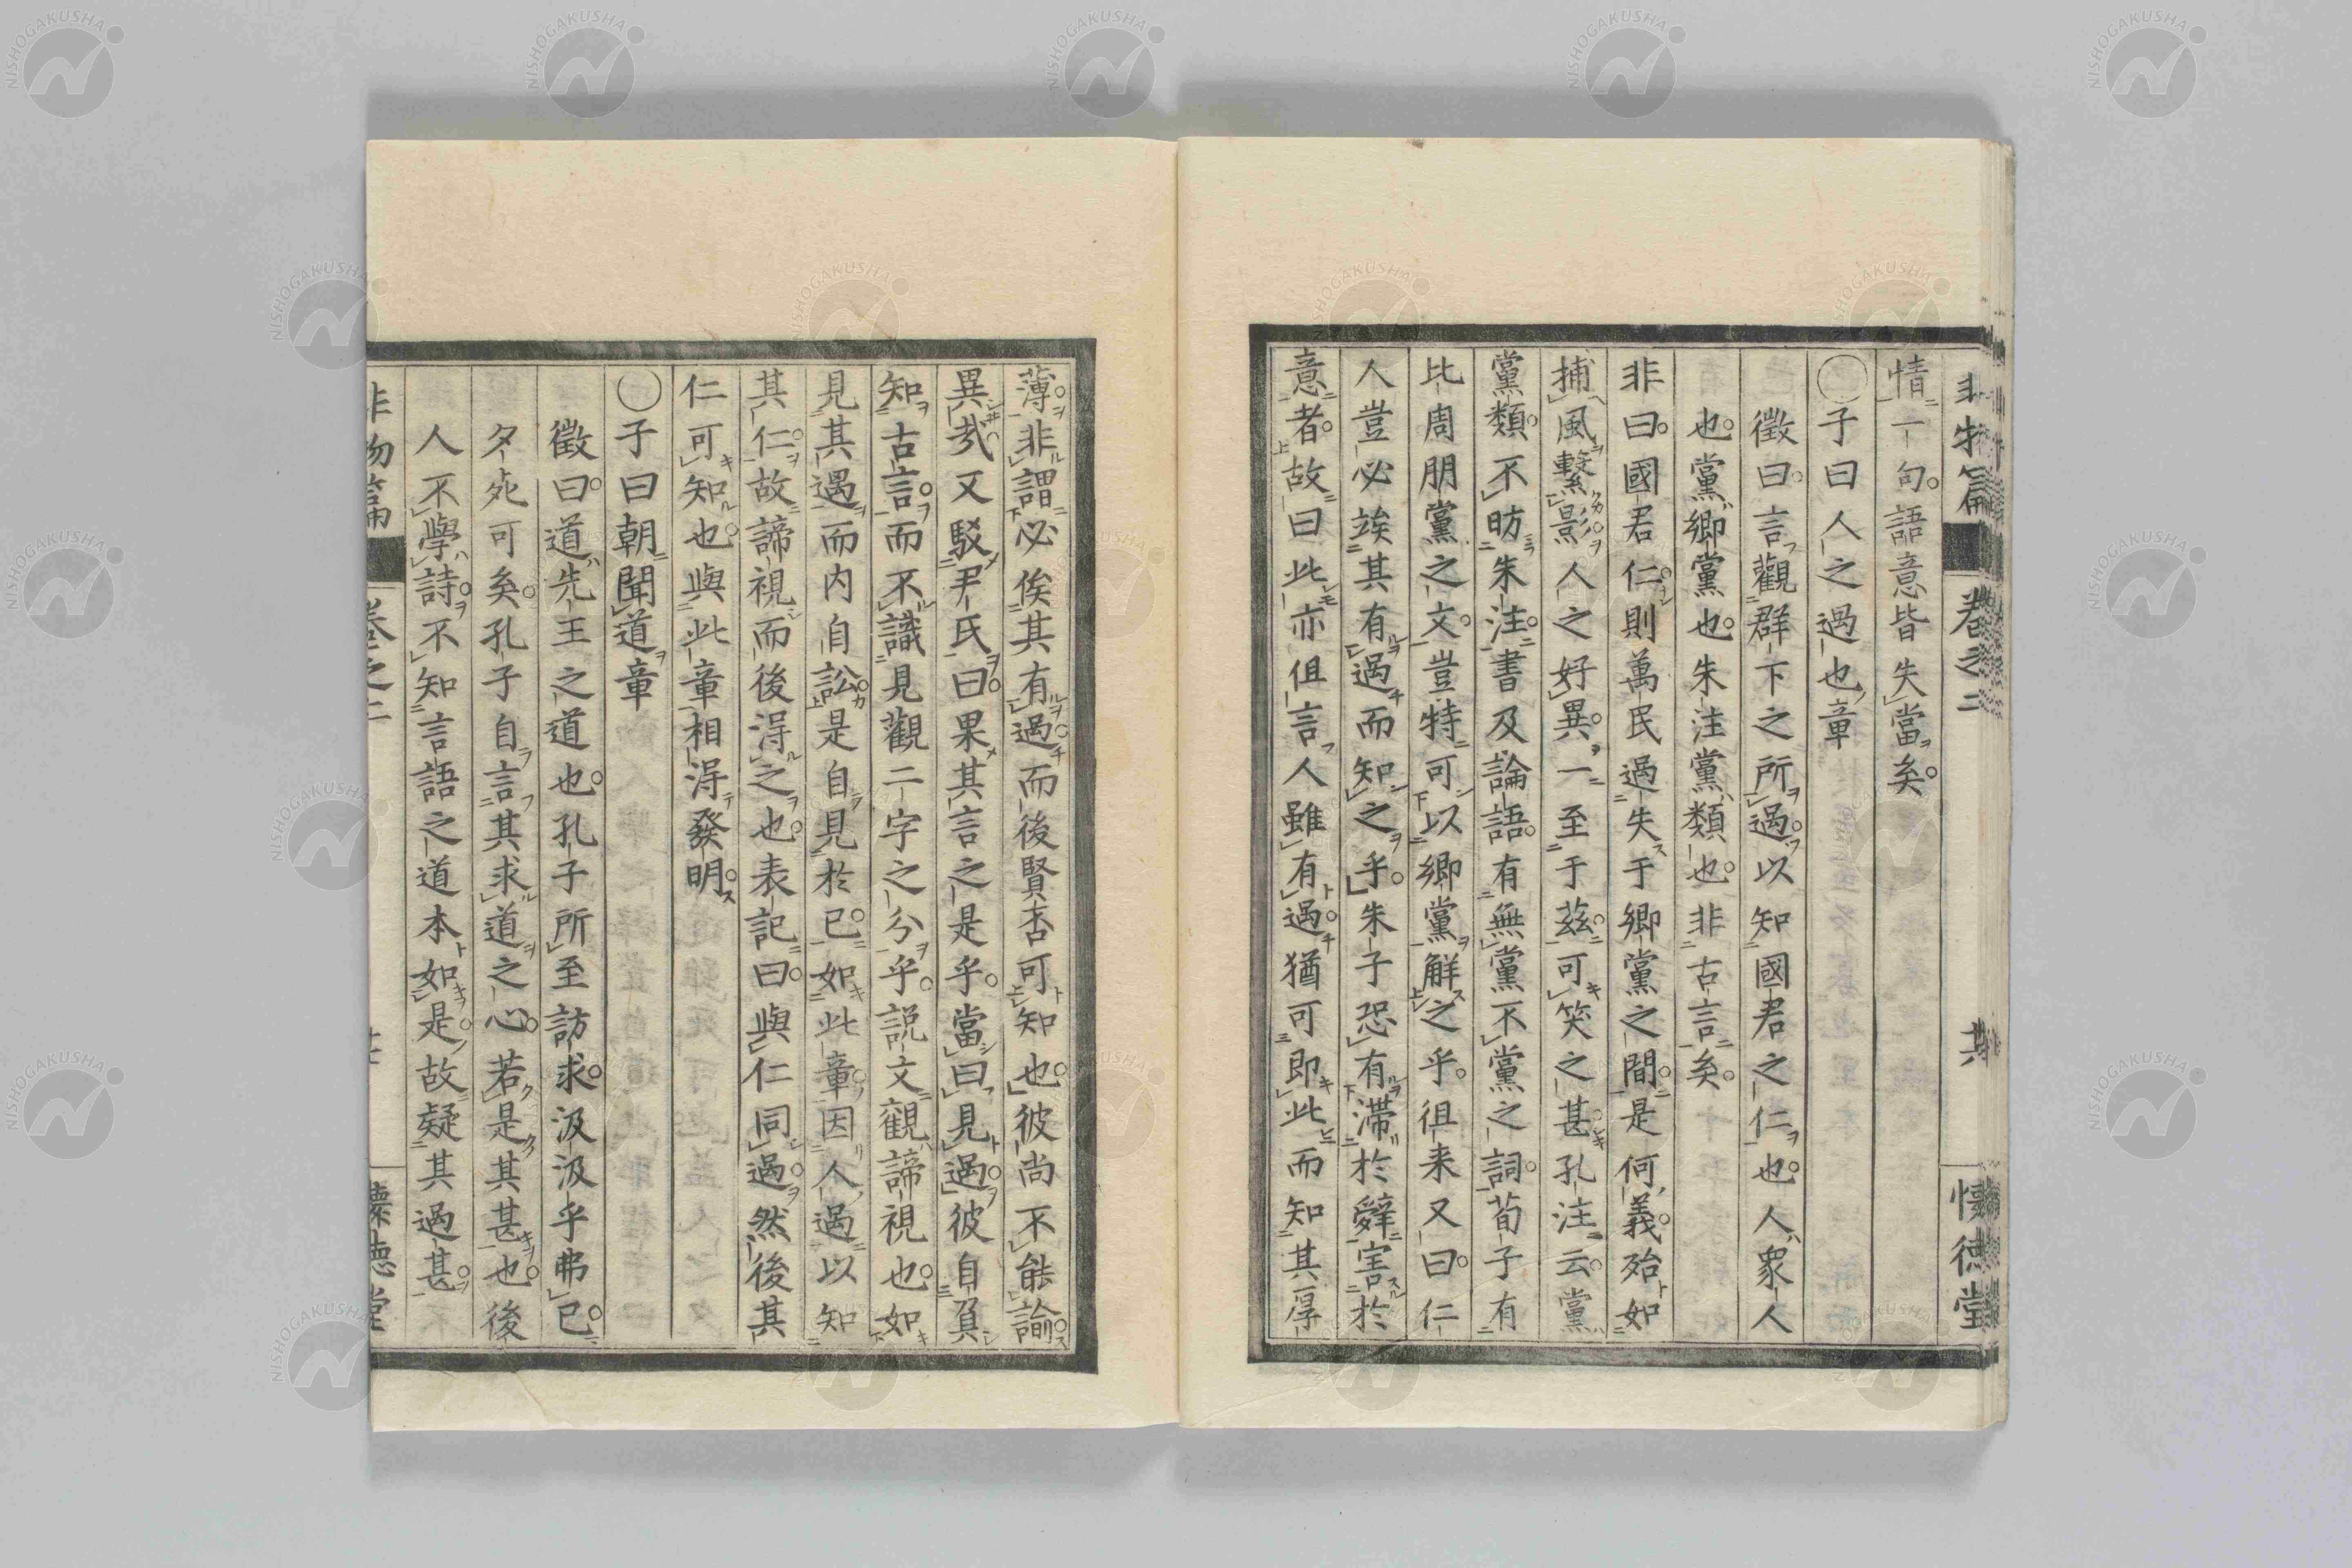 情一句。語意皆失當矣。
○子曰人之過也章
徵曰。言觀群下之所過。以知國君之仁也。人衆人
也。黨鄉黨也。朱注黨類也。非古言矣。
非曰。國君仁。則萬民過失于鄉黨之間。是何義。殆如
捕風繫影。人之好異。一至于茲。可笑之甚。孔注云。黨
黨類。不昉朱注。書及論語。有無黨不黨之詞。荀子有
比周朋黨之文。豈特可以鄉黨解之乎。徂來又曰。仁
人豈必竢其有過而知之乎。朱子恐有滯於辭害於
意者。故曰此亦但言人雖有過。猶可即此而知其厚
薄。非謂必俟其有過而後賢否可知也。彼尚不能諭。
異哉。又駁尹氏曰。果其言之是乎。當曰見過。彼自負
知古言。而不識見觀二字之分乎。説文觀諦視也。如
見其過而内自訟。是自見於已。如此章因人過以知
其仁。故諦視而後得之也。表記曰。與仁同過。然後其
仁可知也。與此章相得發明。
○子曰朝聞道章
徵曰。道先王之道也。孔子所至訪求。汲汲乎弗已。
夕死可矣。孔子自言其求道之心。若是其甚也。後
人不學詩。不知言語之道本如是。故疑其過甚。
非物篇
卷之二
懷德堂
非物篇
卷之二
懷德堂
NISHOGAKUSHA